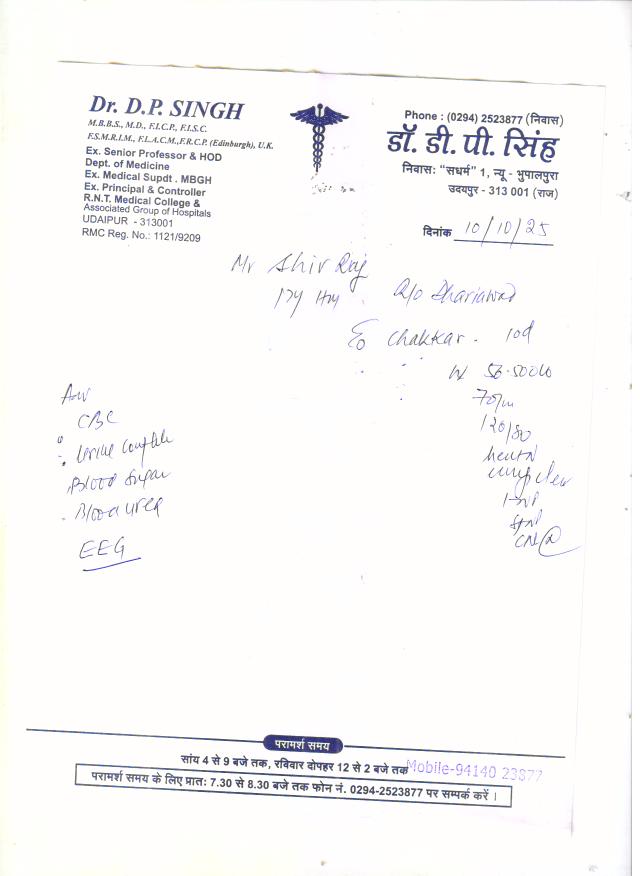 Dr. D.P. SINGH
M.B.B.S., M.D., F.I.C.P., F.I.S.C.
F.S.M.R.I.M., F.I.A.C.M., F.R.C.P. (Edinburgh), U.K.
Ex. Senior Professor & HOD
Dept. of Medicine
Ex. Medical Supdt . MBGH
Ex. Principal & Controller
R.N.T. Medical College &
Associated Group of Hospitals
UDAIPUR - 313001
RMC Reg. No.: 1121/9209
Phone : (0294) 2523877 (निवास)
डॉ. डी. पी. सिंह
निवास: "सधर्म" 1, न्यू - भुपालपुरा
उदयपुर - 313 001 (राज)
दिनांक 10/10/25
Mr Shiv Raj
17y R/o Dhariawad
Chakkar. 10d
70/m
120/80
CBC
Urine
Blood Sugar
Blood Urea
EEG
परामर्श समय
सांय 4 से 9 बजे तक, रविवार दोपहर 12 से 2 बजे तक Mobile-94140 23877
परामर्श समय के लिए प्रातः 7.30 से 8.30 बजे तक फोन नं. 0294-2523877 पर सम्पर्क करें ।